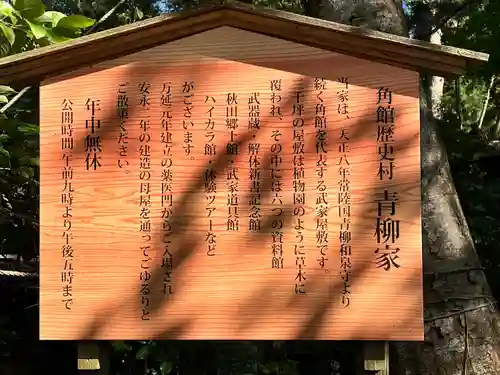 角館歴史村 青柳家
当家は、天正八年常陸国青柳和泉守より
続く角館を代表する武家屋敷です。
三千坪の屋敷は植物園のように草木に
覆われ、その中には六つの資料館
武器蔵・解体新書記念館
秋田郷土館・武家道具館
ハイカラ館・体験ツアーなど
がございます。
万延元年建立の薬医門からご入場され
安永二年の建造の母屋を通ってごゆるりと
ご散策ください。
年中無休
公開時間 午前九時より午後五時まで